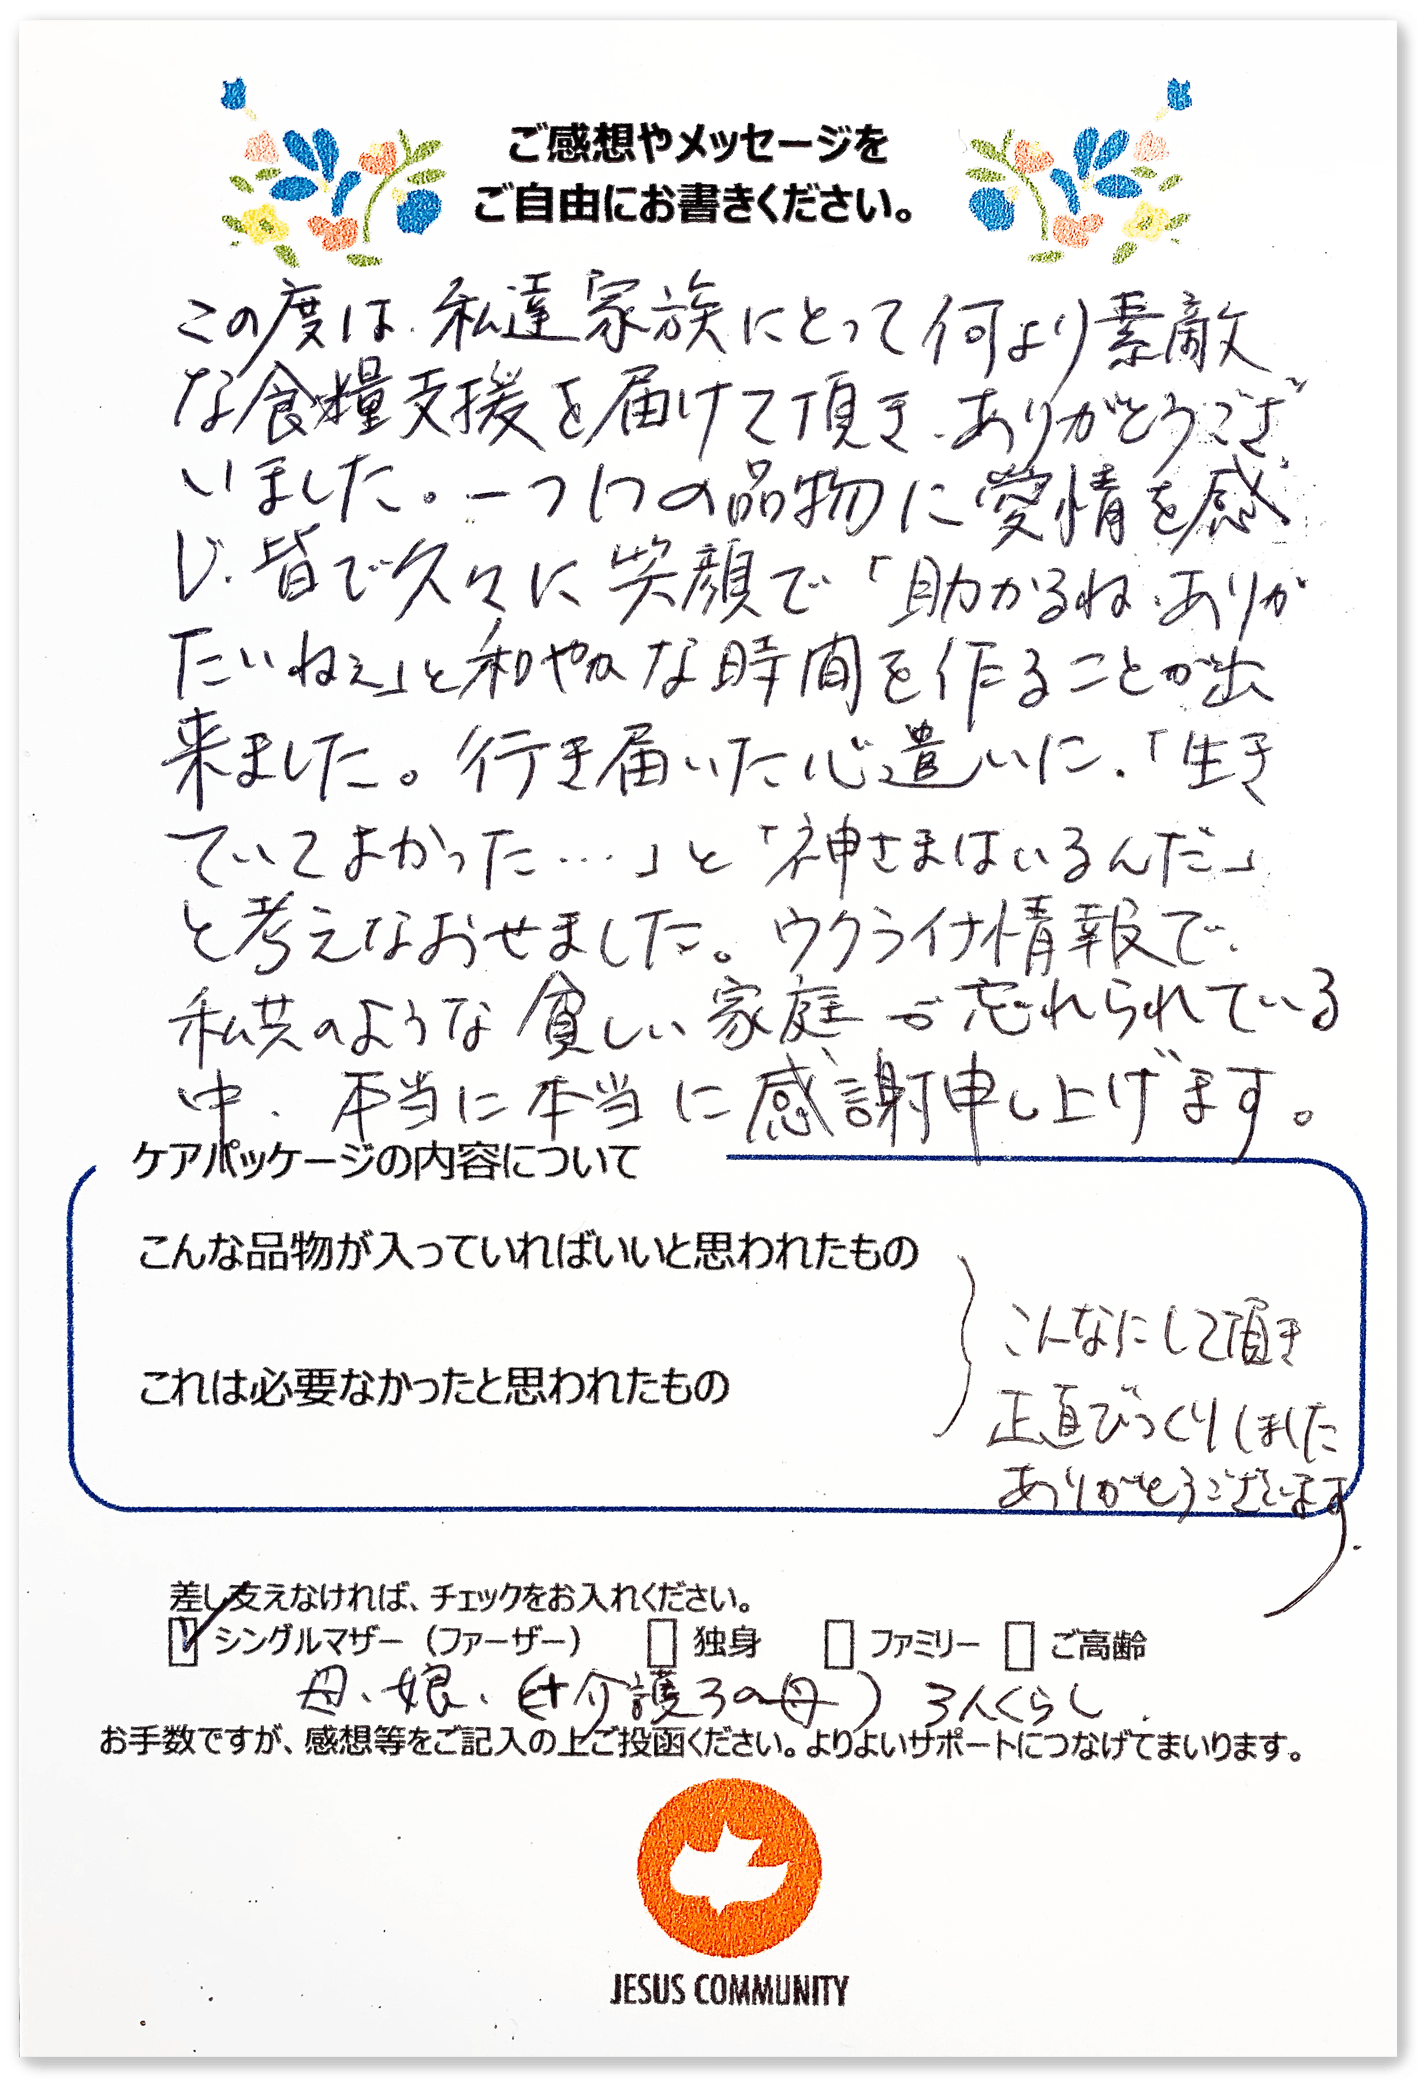 ご感想やメッセージを
ご自由にお書きください。
この度は、私達家族にとって何より素敵
な食糧支援を届けて頂き、ありがとうござ
いました。一つ1つの品物に愛情を感
じ、皆で久々に笑顔で「助かるね、ありが
たいねぇ」と和やかな時間を作ることが出
来ました。行き届いた心遣いに、「生き
ていてよかった…」と「神さまはいるんだ」
と考えなおせました。ウクライナ情報で、
私共のような貧しい家庭が忘れられている
中、本当に本当に感謝申し上げます。
ケアパッケージの内容について
こんな品物が入っていればいいと思われたもの
これは必要なかったと思われたもの
こんなにして頂き
正直びっくりしました
ありがとうございます
差し支えなければ、チェックをお入れください。
シングルマザー（ファーザー） 独身 ファミリー ご高齢
母、娘、(+介護3の母) 3人くらし
お手数ですが、感想等をご記入の上ご投函ください。よりよいサポートにつなげてまいります。
JESUS COMMUNITY